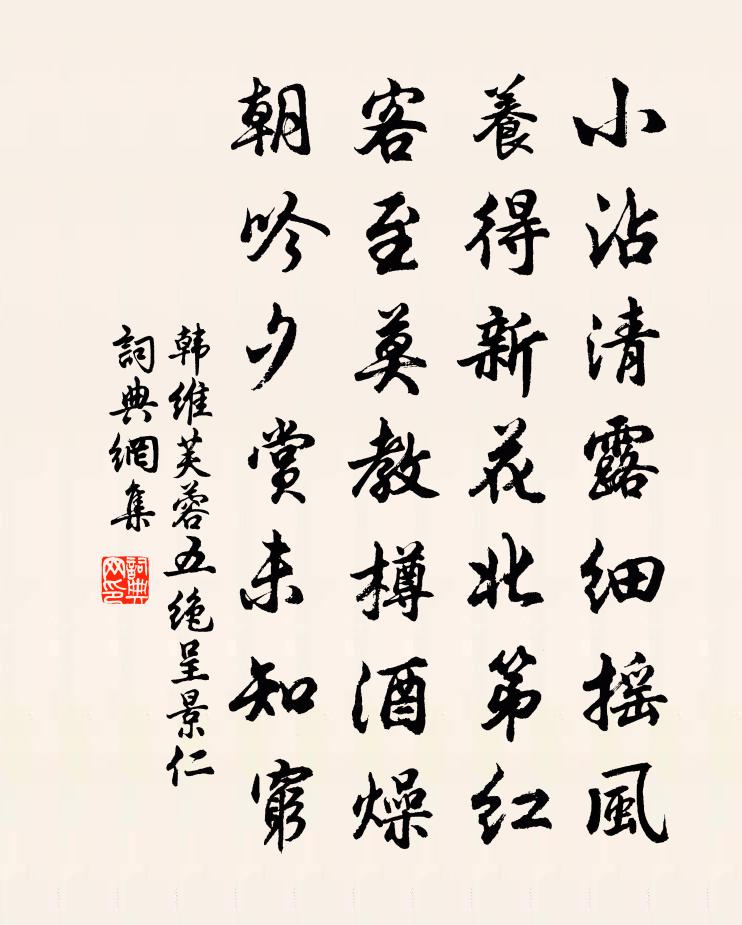 小沾清露細摇風
養得新花北第红
客至莫教樽酒燥
朝吟夕赏未知窮
韩維芙蓉五绝呈景仁
詞典網集
詞典網印